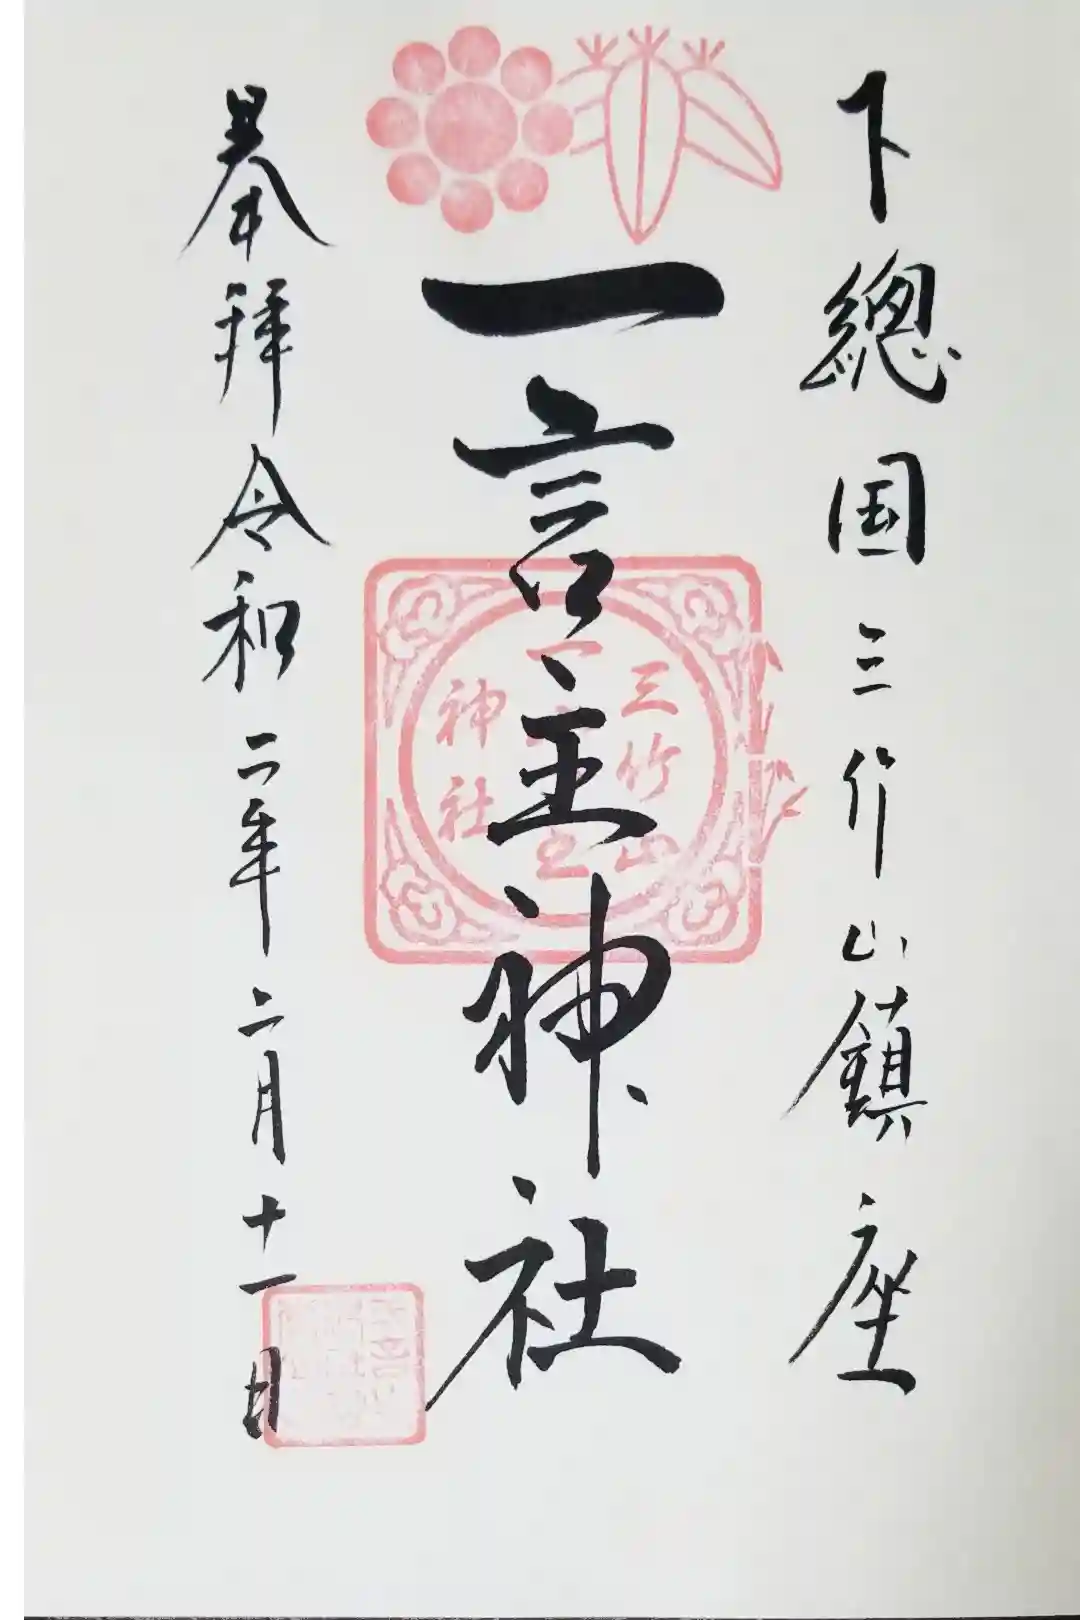 下總国三竹山鎮座
一言主神社
三竹山
神社
奉拝令和二年二月十一日